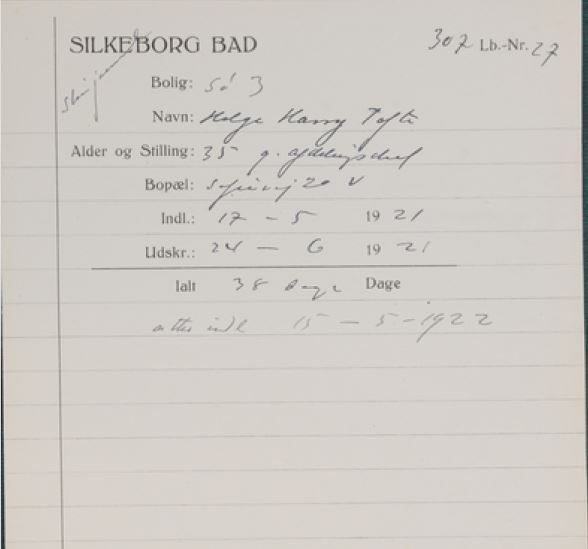 SILKEBORG BAD 307 Lb.-Nr. 27
Bolig: Sö 3
Navn: Helge Harry Tofte
Alder og Stilling: 35 g. afdelingschef
Bopæl: 20 V
Indl.: 17 - 5 1921
Udskr.: 24 - 6 1921
Ialt 38 Dage Dage
atter indl 15 - 5 - 1922